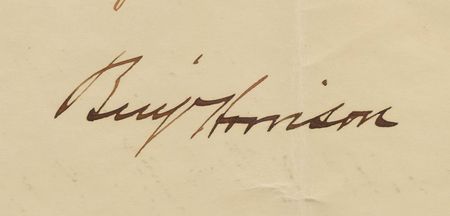 Benjˢ Harrison